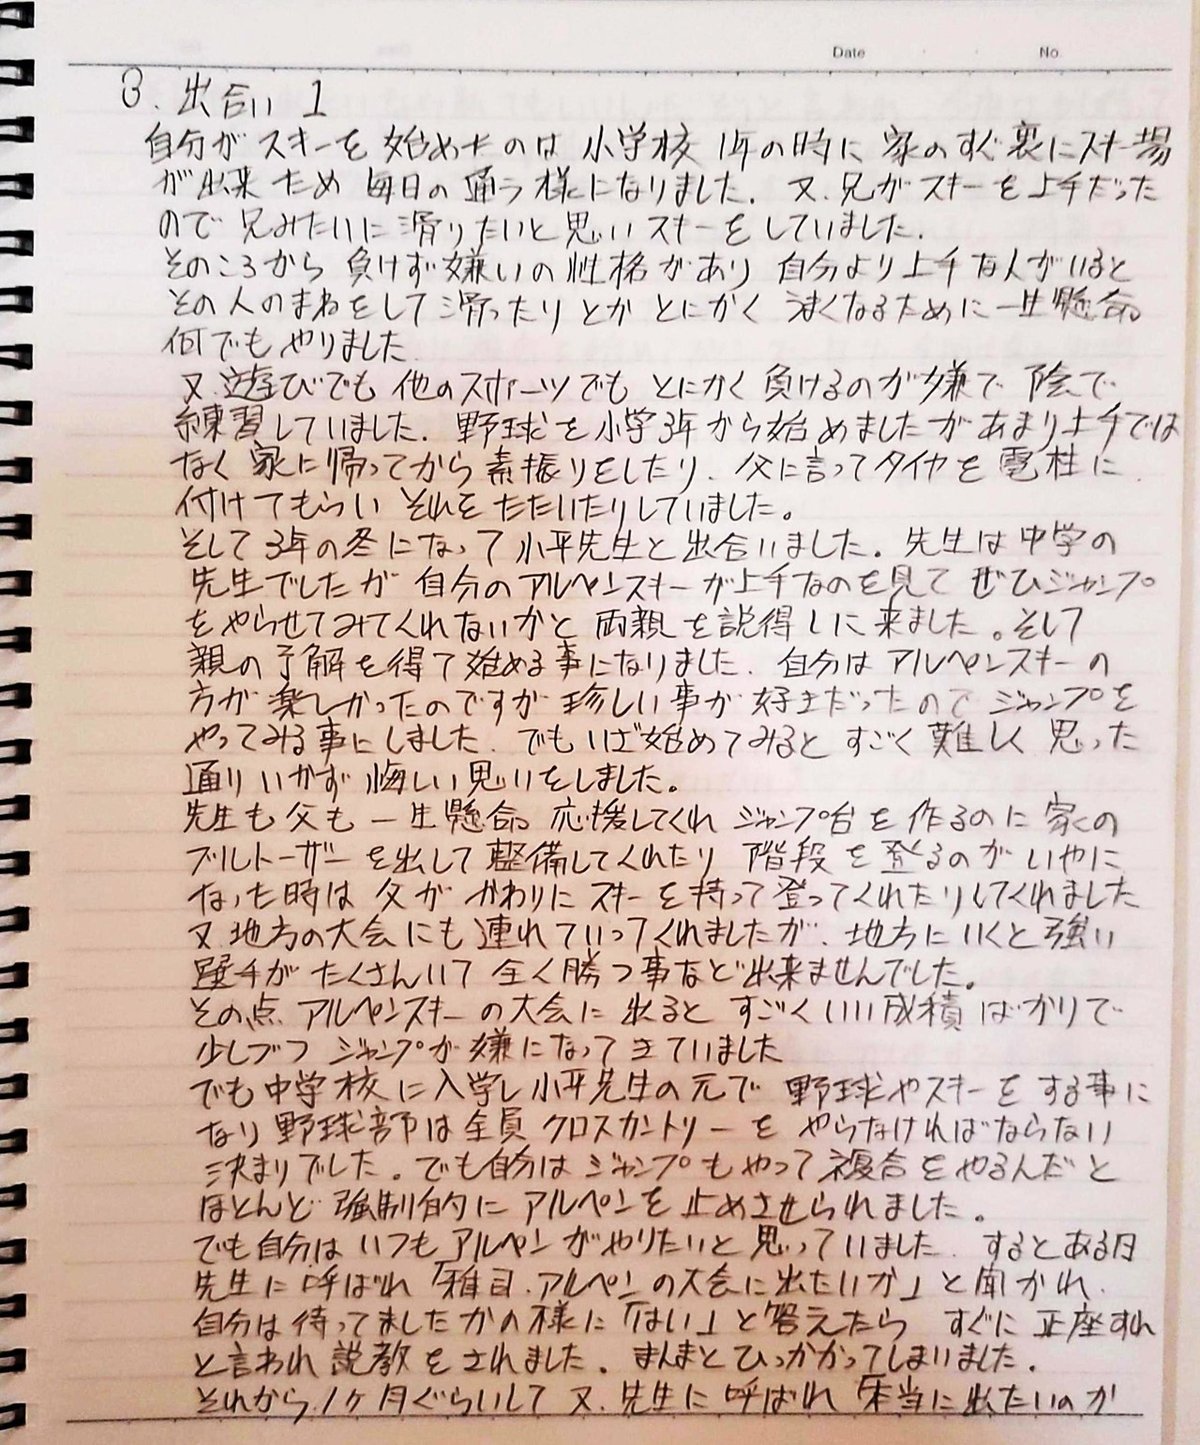 Date No.
3. 出合い 1
自分が スキーを 始めたのは 小学校 1年の時に 家のすぐ裏にスキー場
が出来 ため 毎日の 通う様になりました. 又.兄が スキーを 上手だった
ので 兄みたいに滑りたいと思い スキーをしていました.
そのころから 負けず嫌いの性格があり 自分より上手な人がいると
その人のまねをして 滑ったりとか とにかく うまくなるために一生懸命
何でも やりました.
又.遊びでも 他のスポーツでも とにかく 負けるのが嫌で 陰で
練習していました. 野球を小学3年から始めましたが あまり上手では
なく 家に帰ってから素振りをしたり. 父に言ってタイヤを 電柱に
付けてもらい それを たたいたりしていました。
そして 3年の冬になって 小平先生と出合いました. 先生は中学の
先生でしたが 自分のアルペンスキーが上手なのを見て ぜひジャンプ
をやらせてみてくれないかと 両親を説得しに来ました。そして
親の了解を得て始める事になりました. 自分は アルペンスキーの
方が 楽しかったのですが 珍しい事が 好きだったので ジャンプを
やってみる事にしました. でもいざ始めてみると すごく 難しく 思った
通り いかず 悔しい思いをしました。
先生も 父も 一生懸命 応援してくれ ジャンプ台を作るのに 家の
ブルトーザーを出して 整備してくれたり 階段を登るのが いやに
なった時は 父が かわりに スキーを持って 登ってくれたりしてくれました
又.地方の大会にも 連れていってくれましたが. 地方にいくと強い
選手が たくさんいて 全く勝つ事など出来ませんでした。
その点.アルペンスキーの大会に 出ると すごくいい成積ばかりで
少しづつ ジャンプが 嫌になってきていました
でも 中学校に入学し 小平先生の元で 野球やスキーをする事に
なり 野球部は全員 クロスカントリーを やらなければならない
決まりでした。でも自分は ジャンプもやって複合をやるんだと
ほとんど 強制的に アルペンを 止めさせられました。
でも自分は いつも アルペンがやりたいと 思っていました. するとある日
先生に呼ばれ 「雅目.アルペンの大会に出たいか」と聞かれ.
自分は待ってましたかの様に「はい」と答えたら すぐに 正座すれ
と言われ 説教をされました. まんまとひっかかってしまいました.
それから.1ヶ月ぐらいして 又.先生に呼ばれ 「本当に出たいのか